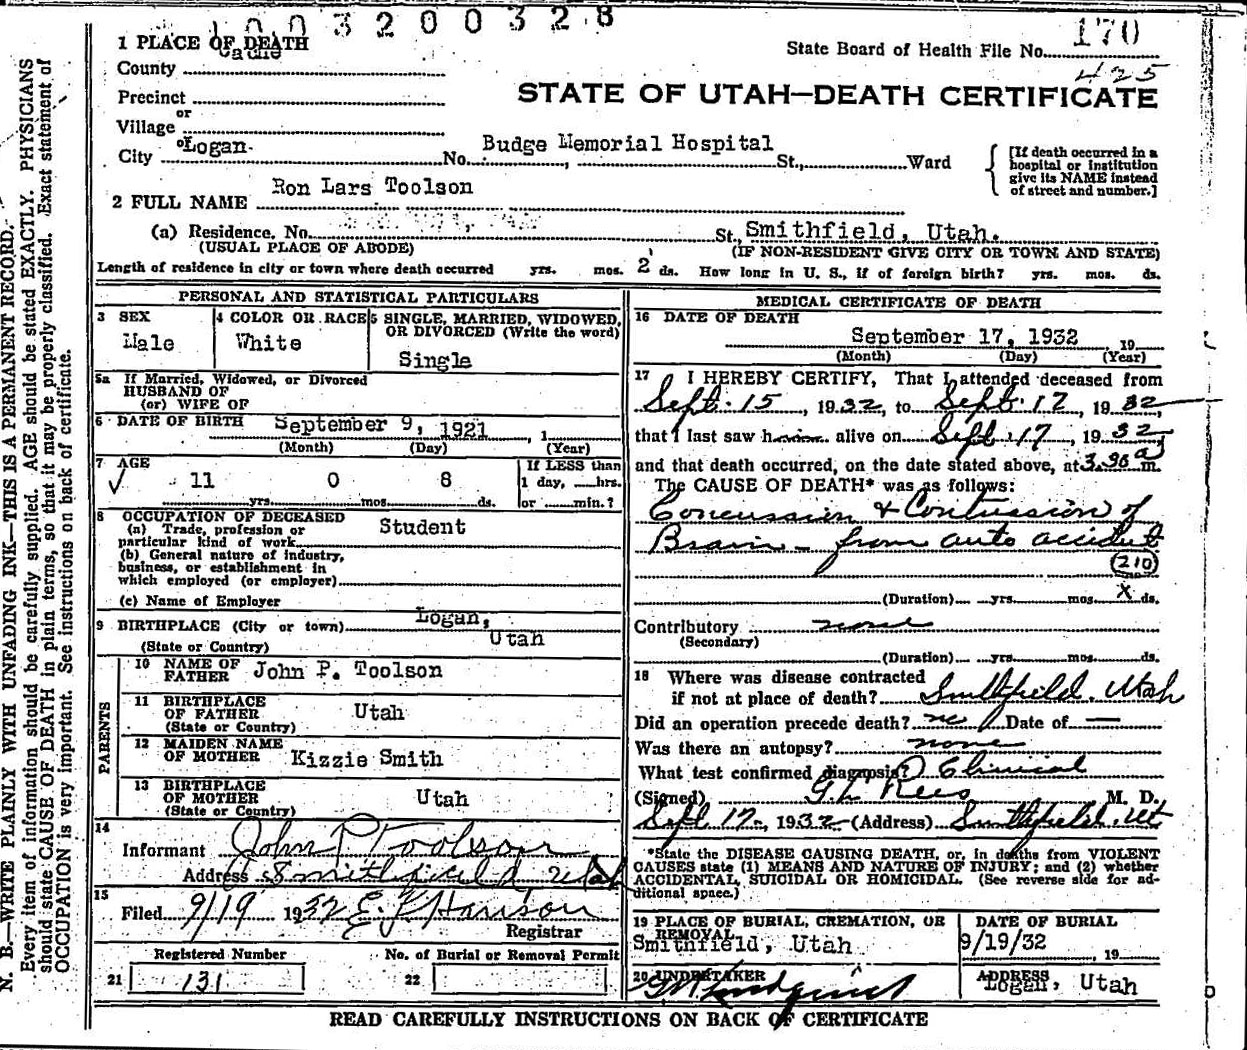 1 0 0 3 2 0 0 3 2 8
1 PLACE OF DEATH
Cache
County
State Board of Health File No. 170
425
Precinct
or
Village
STATE OF UTAH—DEATH CERTIFICATE
City Logan No. Budge Memorial Hospital St., Ward
[If death occurred in a
hospital or institution
give its NAME instead
of street and number.]
2 FULL NAME Ron Lars Toolson
(a) Residence. No. St., Smithfield, Utah.
(USUAL PLACE OF ABODE) (IF NON-RESIDENT GIVE CITY OR TOWN AND STATE)
Length of residence in city or town where death occurred yrs. mos. 2 ds. How long in U. S., if of foreign birth? yrs. mos. ds.
PERSONAL AND STATISTICAL PARTICULARS
3 SEX
Male
4 COLOR OR RACE
White
5 SINGLE, MARRIED, WIDOWED,
OR DIVORCED (Write the word)
Single
5a If Married, Widowed, or Divorced
HUSBAND OF
(or) WIFE OF
6 DATE OF BIRTH September 9, 1921 , 1
(Month) (Day) (Year)
7 AGE
11 yrs. 0 mos. 8 ds.
If LESS than
1 day, hrs.
or min.?
8 OCCUPATION OF DECEASED
(a) Trade, profession or
particular kind of work Student
(b) General nature of industry,
business, or establishment in
which employed (or employer)
(c) Name of Employer
9 BIRTHPLACE (City or town) Logan,
(State or Country) Utah
PARENTS
10 NAME OF
FATHER John P. Toolson
11 BIRTHPLACE
OF FATHER Utah
(State or Country)
12 MAIDEN NAME
OF MOTHER Kizzie Smith
13 BIRTHPLACE
OF MOTHER Utah
(State or Country)
14
Informant John P Toolson
Address Smithfield Utah
15
Filed 9/19 1932 E. Harrison
Registrar
Registered Number
21 131
No. of Burial or Removal Permit
22
MEDICAL CERTIFICATE OF DEATH
16 DATE OF DEATH
September 17, 1932 19
(Month) (Day) (Year)
17 I HEREBY CERTIFY, That I attended deceased from
Sept. 15, 1932, to Sept. 17, 1932,
that I last saw him alive on Sept. 17, 1932,
and that death occurred, on the date stated above, at 3.30 a m.
The CAUSE OF DEATH* was as follows:
Concussion & Contussion of
Brain – from auto accident
(210)
(Duration) yrs. mos. X ds.
Contributory none
(Secondary)
(Duration) yrs. mos. ds.
18 Where was disease contracted
if not at place of death? Smithfield, Utah
Did an operation precede death? no Date of —
Was there an autopsy? none
What test confirmed diagnosis? Clinical
(Signed) G L Rees M. D.
Sept 17, 1932 (Address) Smithfield, Ut
*State the DISEASE CAUSING DEATH, or, in deaths from VIOLENT
CAUSES state (1) MEANS AND NATURE OF INJURY; and (2) whether
ACCIDENTAL, SUICIDAL OR HOMICIDAL. (See reverse side for ad-
ditional space.)
19 PLACE OF BURIAL, CREMATION, OR
REMOVAL
Smithfield, Utah
DATE OF BURIAL
9/19/32 , 19
20 UNDERTAKER
Lindquist
ADDRESS
Logan, Utah
READ CAREFULLY INSTRUCTIONS ON BACK OF CERTIFICATE
N. B.—WRITE PLAINLY WITH UNFADING INK—THIS IS A PERMANENT RECORD.
Every item of information should be carefully supplied. AGE should be stated EXACTLY. PHYSICIANS
should state CAUSE OF DEATH in plain terms, so that it may be properly classified. Exact statement of
OCCUPATION is very important. See instructions on back of certificate.